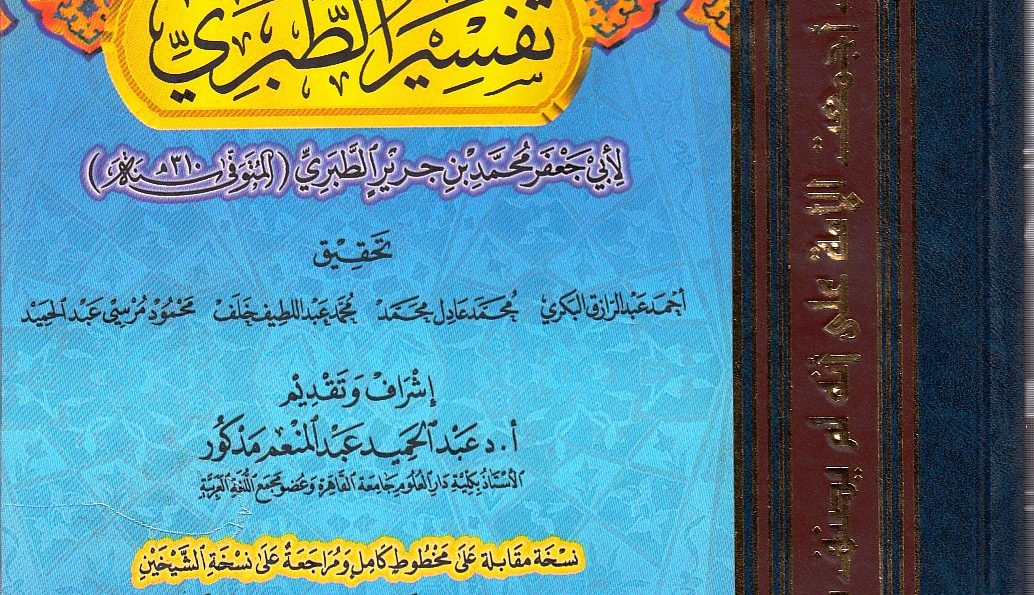 تفسير الطبري
لِأَبِي جَعْفَر مُحَمَّدِ بْنِ جَرِيْرٍ الطَّبَرِيِّ (المُتَوَفَّى سنة ٣١٠هـ)
تَحْقِيْق
أحمد عبد الرازق البكري محمد عادل محمد محمد عبد اللطيف خلف محمود مرسي عبد الحميد
إشراف وتقديم
أ.د عبد الحميد عبد المنعم مدكور
الأستاذ بكلية دار العلوم جامعة القاهرة وعضو مجمع اللغة العربية
نسخة مقابلة على مخطوط كامل ومراجعة على نسخة الشيخين
أجمعت الأمة على أنه لم يصنف